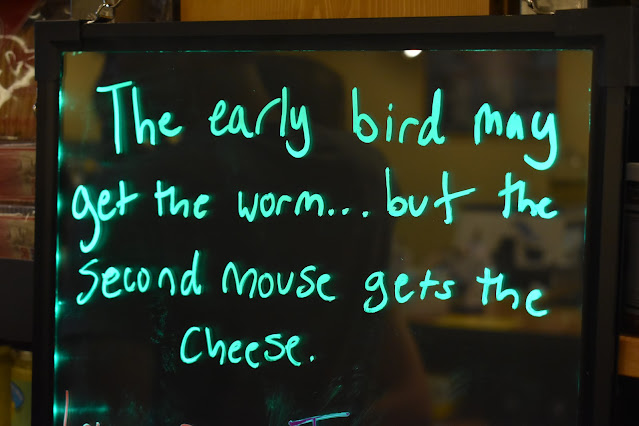 The early bird may
get the worm... but the
second mouse gets the
cheese.